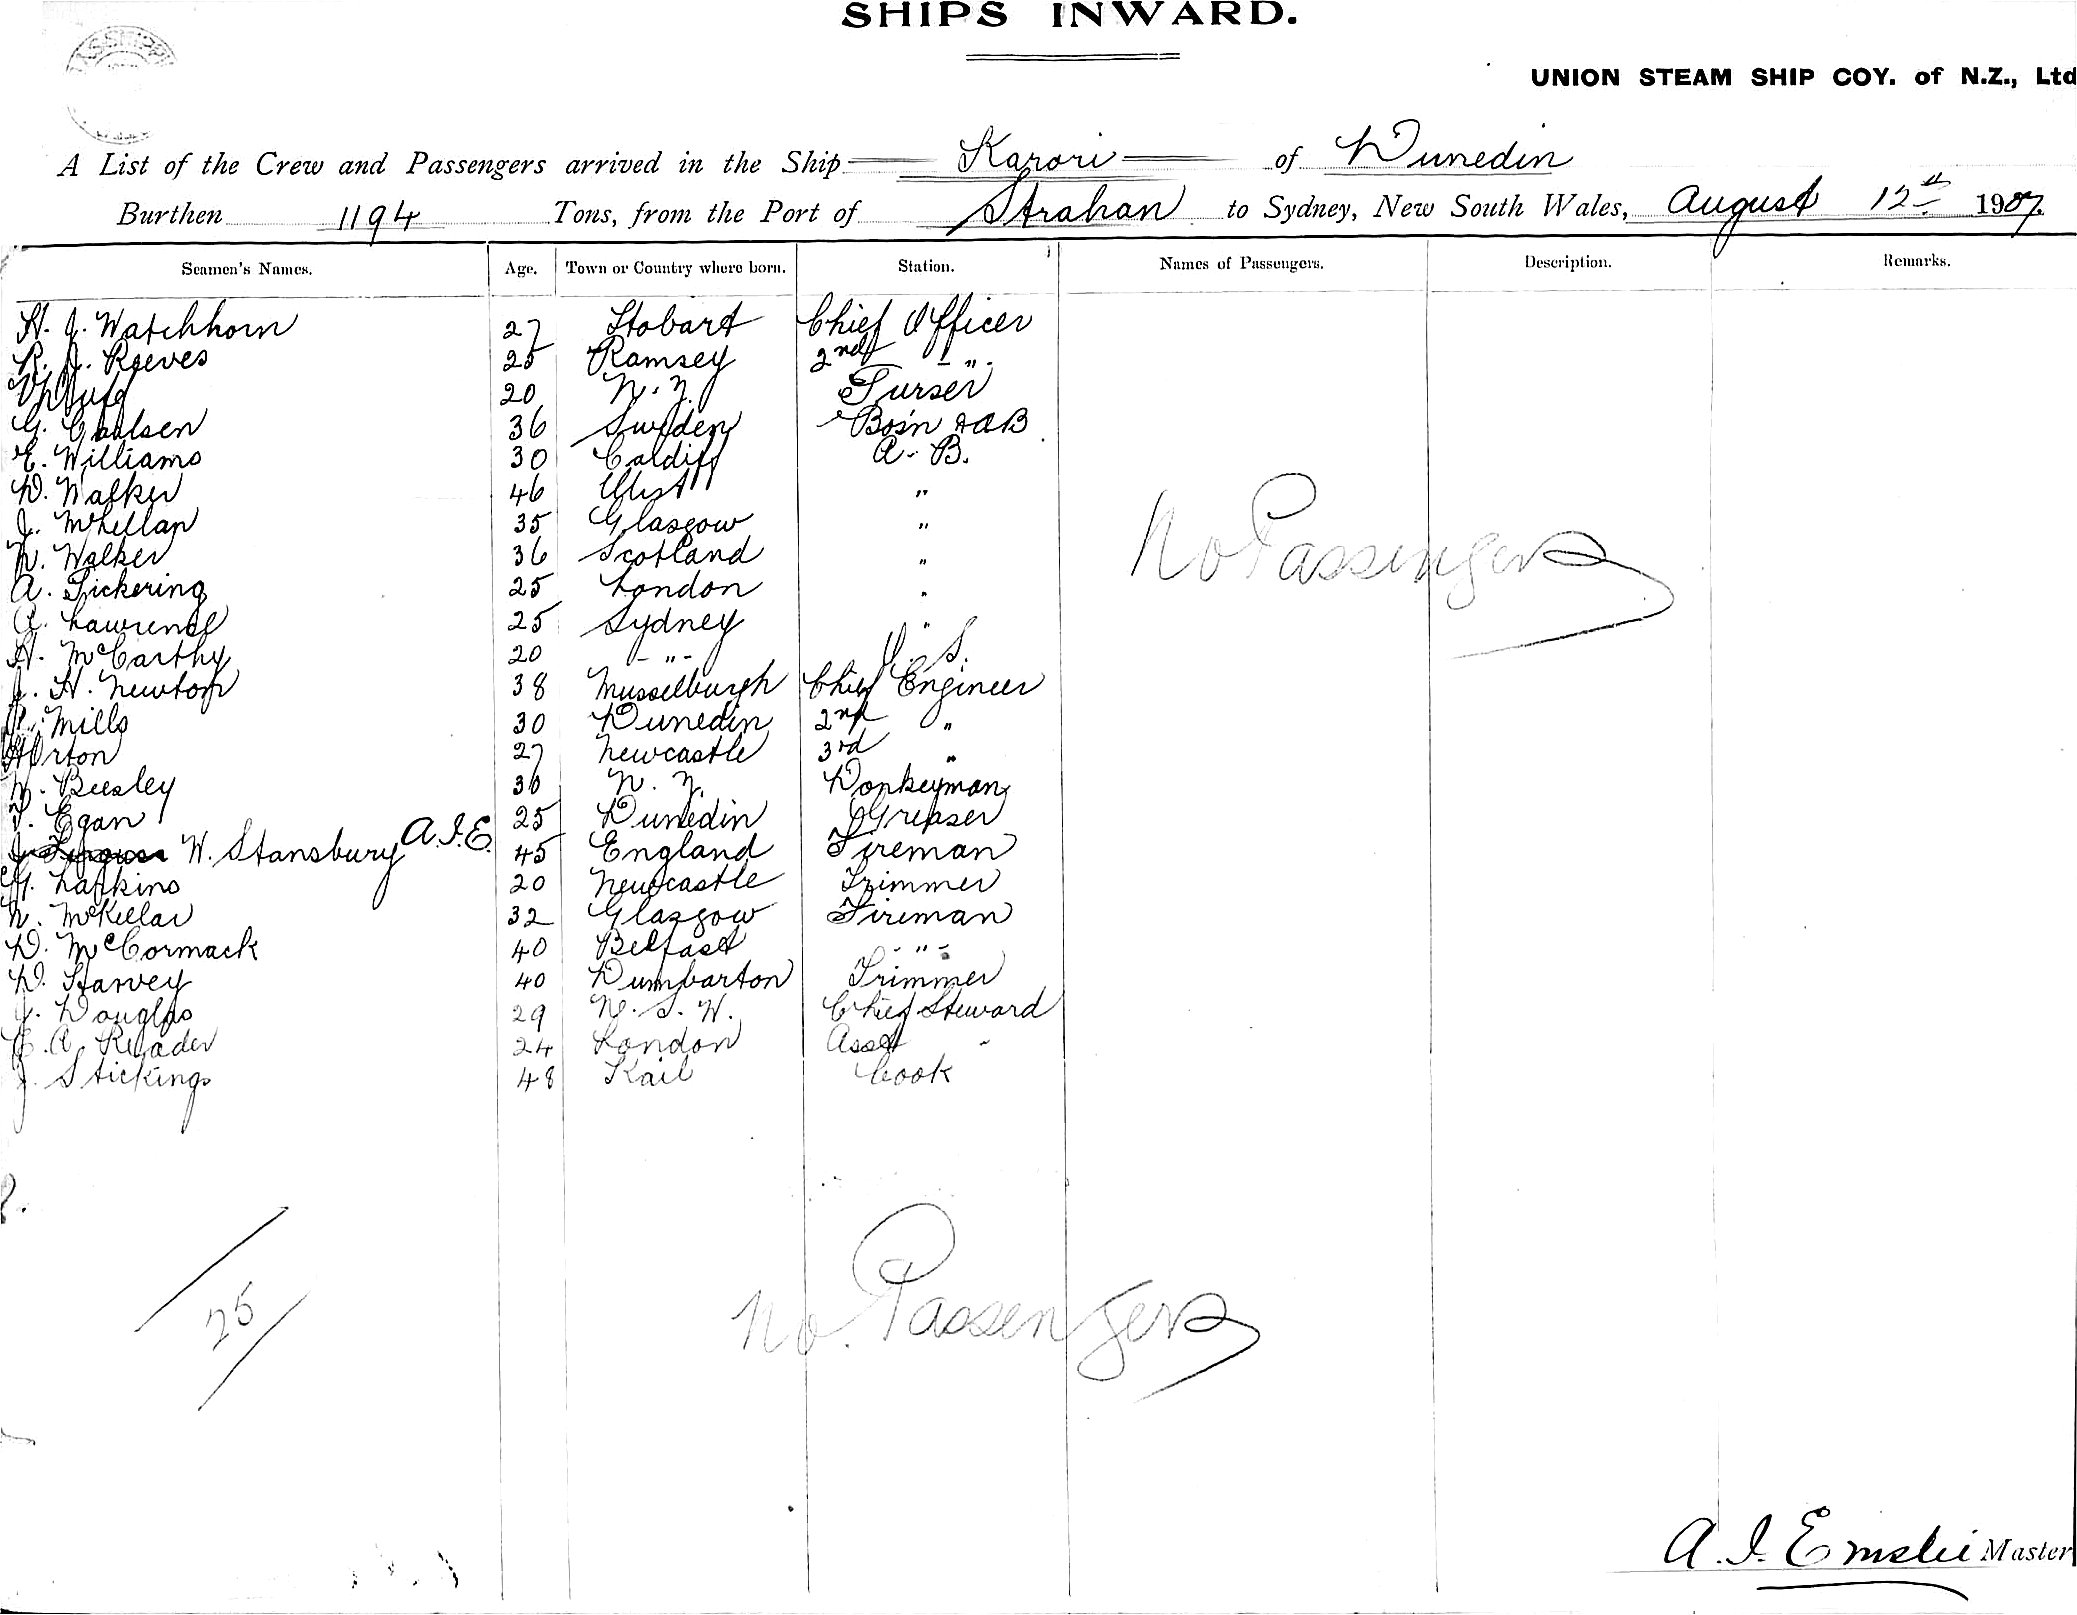 SHIPS INWARD.
UNION STEAM SHIP COY. of N.Z., Ltd
A List of the Crew and Passengers arrived in the Ship Karori of Dunedin
Burthen 1194 Tons, from the Port of Strahan to Sydney, New South Wales, August 12th 1907.
Seamen's Names. Age. Town or Country where born. Station. Names of Passengers. Description. Remarks.
H. J. Watchhorn 27 Hobart Chief Officer
R. J. Reeves 25 Ramsey 2nd "
20 N. Z. Purser
G. 36 Sweden Bo'sn & AB
E. Williams 30 Caldiff A. B.
D. Walker 46 "
J. McLellan 35 Glasgow "
W. Walker 36 Scotland "
A. Pickering 25 London "
A. Lawrence 25 Sydney "
H. McCarthy 20 - " - O. S.
J. H. Newton 38 Musselburgh Chief Engineer
Mills 30 Dunedin 2nd "
Horton 27 Newcastle 3rd "
W. Beesley 36 N. Z. Donkeyman
T. Egan 25 Dunedin Greaser
W. Stansbury A.I.E. 45 England Fireman
H. Larkins 20 Newcastle Trimmer
N. McKellar 32 Glasgow Fireman
D. McCormack 40 Belfast - " -
D. Harvey 40 Dumbarton Trimmer
J. Douglas 29 N. S. W. Chief Steward
E. A. Reader 24 London Asst "
J. Stickings 48 Cook
No Passengers
25
No. Passengers
A. I. Emslie Master